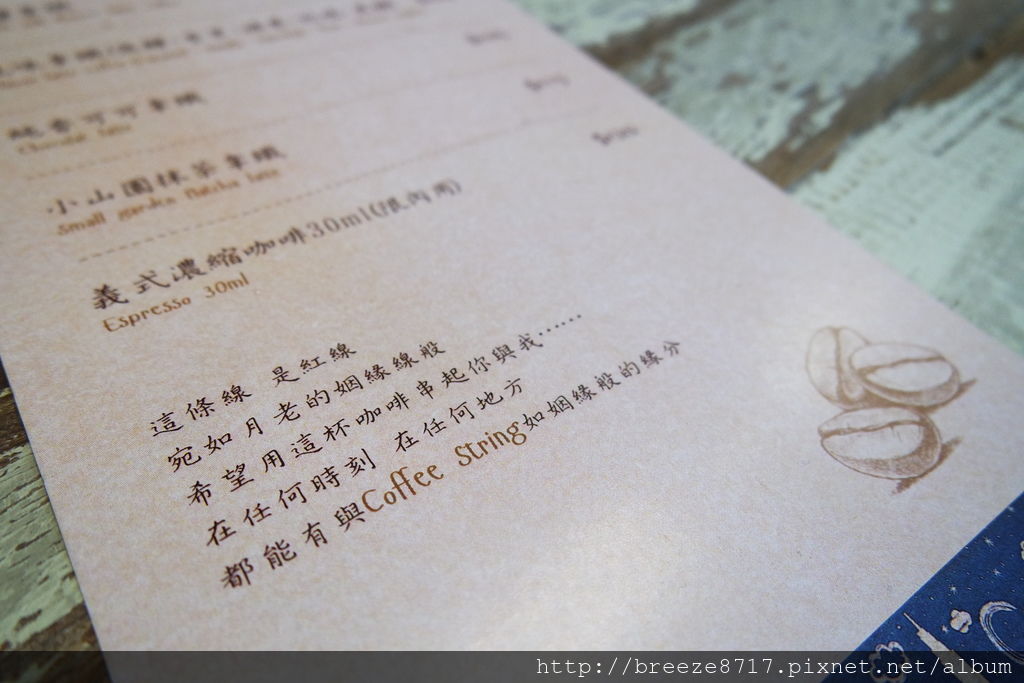 純香可可拿鐵
Chocolate latte
小山園抹茶拿鐵
Small garden Matcha latte
義式濃縮咖啡30ml(限內用)
Espresso 30ml
這條線 是紅線
宛如月老的姻緣線般
希望用這杯咖啡串起你與我......
在任何時刻 在任何地方
都能有與Coffee String如姻緣般的緣分
http://breeze8717.pixnet.net/album